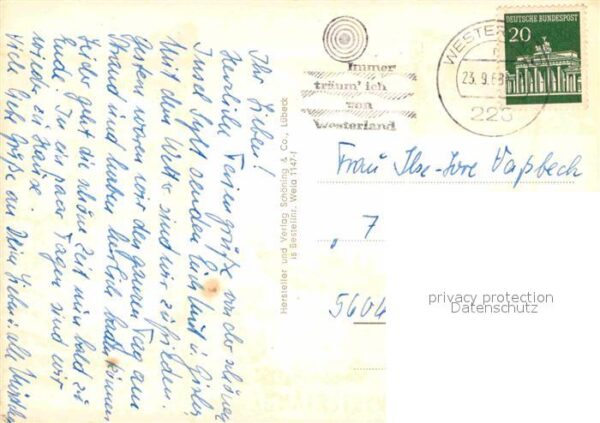 Ihr Lieben!
Herzliche Feriengrüße von der schönen
Insel Sylt senden Euch
Mit dem Wetter sind wir zufrieden.
Gestern waren wir den ganzen Tag am
Strand und haben baden können
Leider geht die schöne Zeit nun bald zu
Ende. In ein paar Tagen sind wir
wieder zu Hause
Viele liebe Grüße an Deine Lieben u. alle
Hersteller und Verlag Schöning & Co., Lübeck
is Bestellnr. Weia 1147/
Immer
träum' ich
von
Westerland
WESTERL
23.9.68
228
DEUTSCHE BUNDESPOST
20
Frau Ilse-Lore
7
5604
privacy protection
Datenschutz